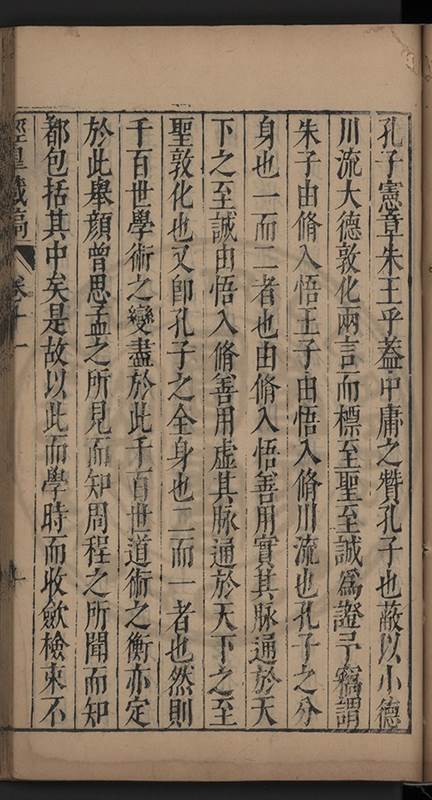 孔子憲章朱王乎葢中庸之贊孔子也蔽以小德
川流大德敦化兩言而標至聖至誠爲證予竊謂
朱子由脩入悟王子由悟入脩川流也孔子之分
身也一而二者也由脩入悟善用實其脉通於天
下之至誠由悟入脩善用虛其脉通於天下之至
聖敦化也又卽孔子之全身也二而一者也然則
千百世學術之變盡於此千百世道術之衡亦定
於此舉顔曾思孟之所見而知周程之所聞而知
都包括其中矣是故以此而學時而收斂檢束不
涇臯藏稿 卷十一